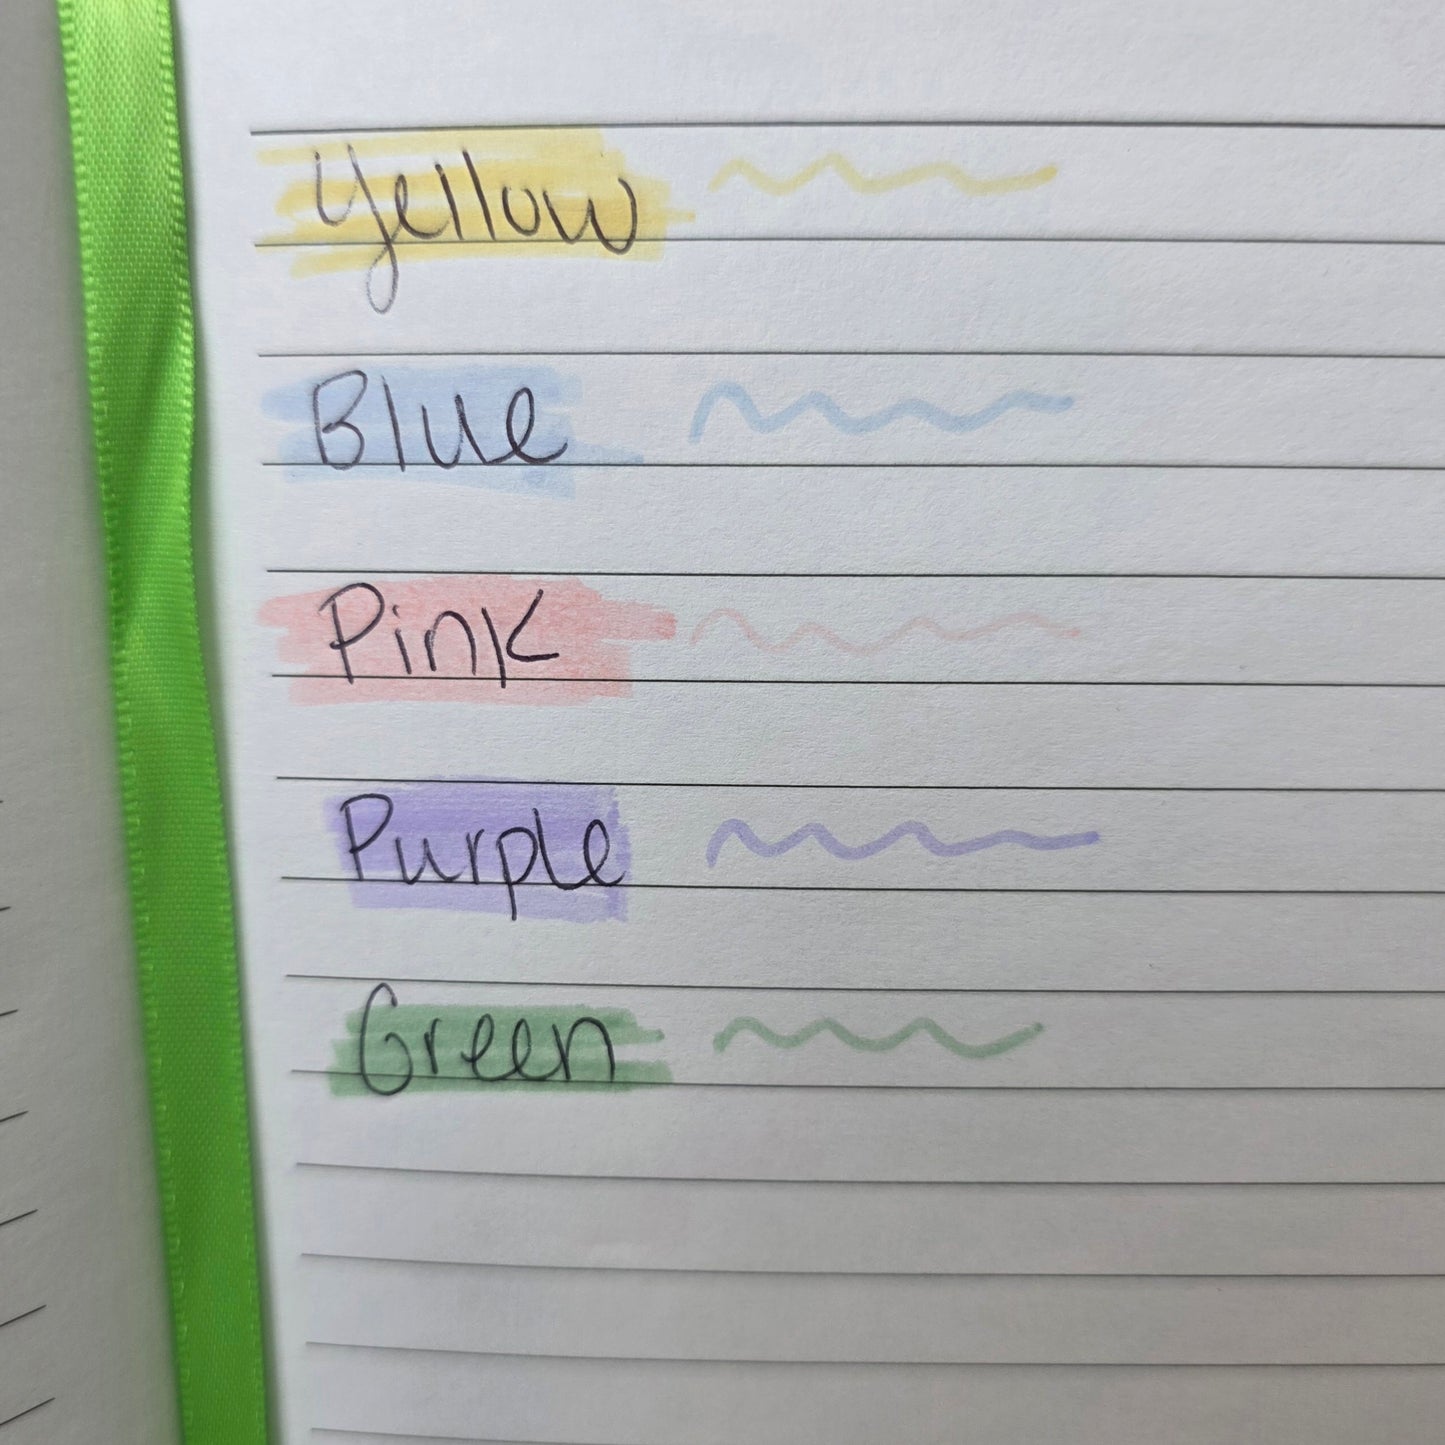 Yellow
Blue
Pink
Purple
Green